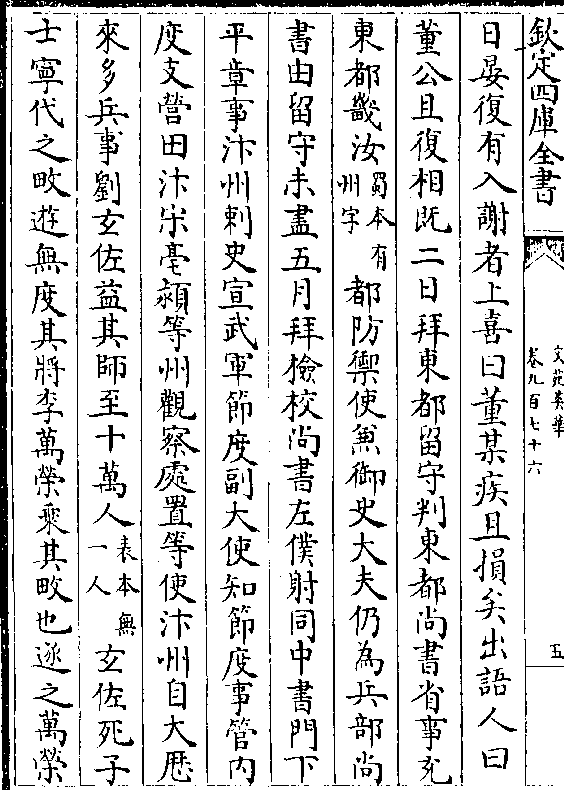 欽定四庫全書
文苑英華
卷九百七十六
五
日晏復有入謝者上喜曰董某疾且損矣出語人曰
董公且復相既二日拜東都留守判東都尚書省事充
東都畿汝蜀本有州字都防禦使兼御史大夫仍為兵部尚
書由留守未盡五月拜檢校尚書左僕射同中書門下
平章事汴州刺史宣武軍節度副大使知節度事管内
度支營田汴宋亳潁等州觀察處置等使汴州自大厯
來多兵事劉玄佐益其師至十萬人表本無一人玄佐死子
士寧代之畋遊無度其將李萬榮乘其畋也逐之萬榮